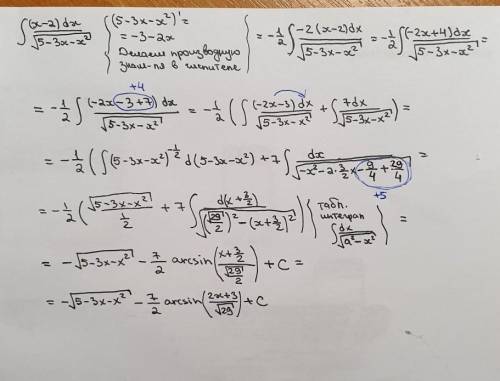 ∫ (x-2)dx / √(5-3x-x²) { (5-3x-x²)' = = -3-2x Делаем производную знам-ля в числителе } = -1/2 ∫ -2(x-2)dx / √(5-3x-x²) = -1/2 ∫ (-2x+4)dx / √(5-3x-x²) =
+4
= -1/2 ∫ (-2x-3+7)dx / √(5-3x-x²) = -1/2 ( ∫ (-2x-3)dx / √(5-3x-x²) + ∫ 7dx / √(5-3x-x²) ) =
= -1/2 ( ∫ (5-3x-x²)^(-1/2) d(5-3x-x²) + 7 ∫ dx / √(-x²-2·3/2x-9/4+29/4) =
+5
= -1/2 ( √(5-3x-x²) / (1/2) + 7 ∫ d(x+3/2) / √((√29/2)²-(x+3/2)²) { табл. интеграл ∫ dx / √(a²-x²) } =
= -√(5-3x-x²) - 7/2 arcsin( (x+3/2) / (√29/2) ) + C =
= -√(5-3x-x²) - 7/2 arcsin( (2x+3) / √29 ) + C